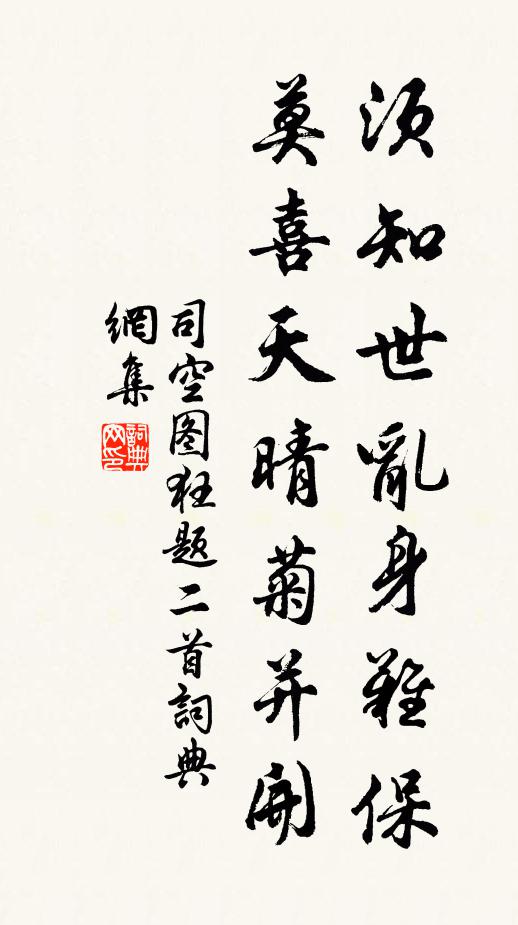 須知世亂身難保
莫喜天晴菊并開
司空图狂题二首詞典
網集
詞典
网印